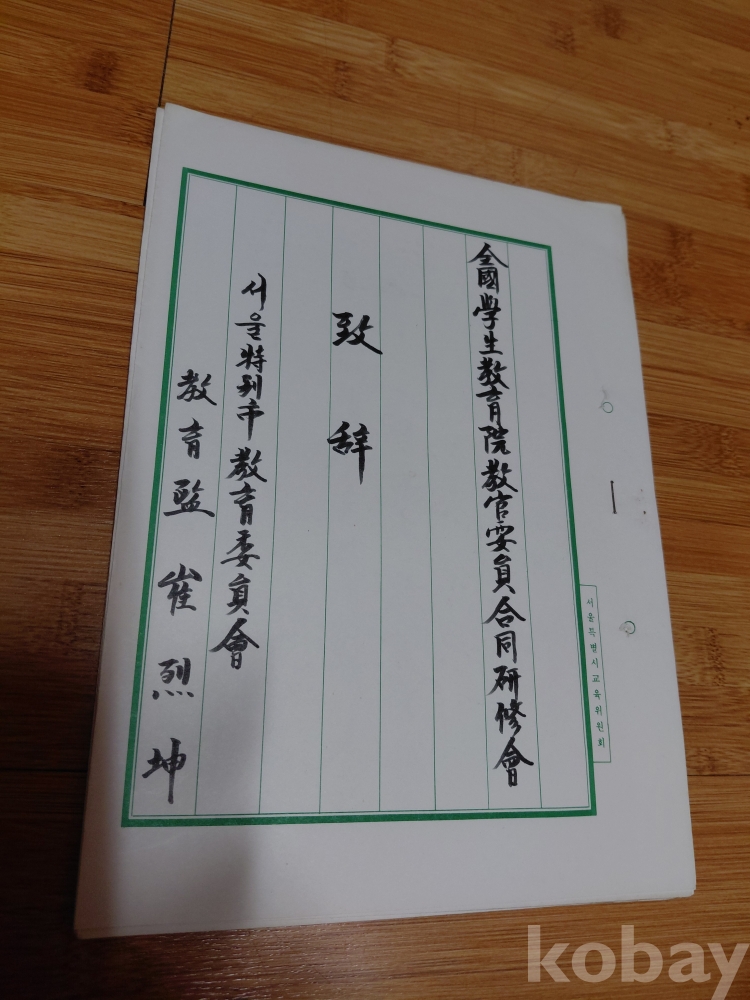 全國學生敎育院敎官要員合同硏修會
致辞
서울特别市敎育委員會
敎育監 崔烈坤
서울특별시교육위원회
kobay